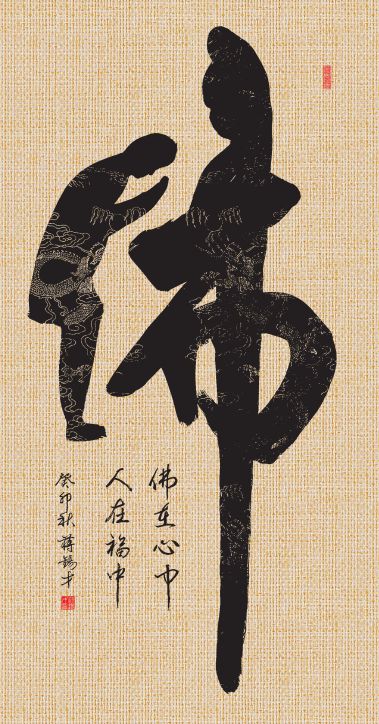 佛
佛在心中
人在福中
癸卯秋 蒋锡才